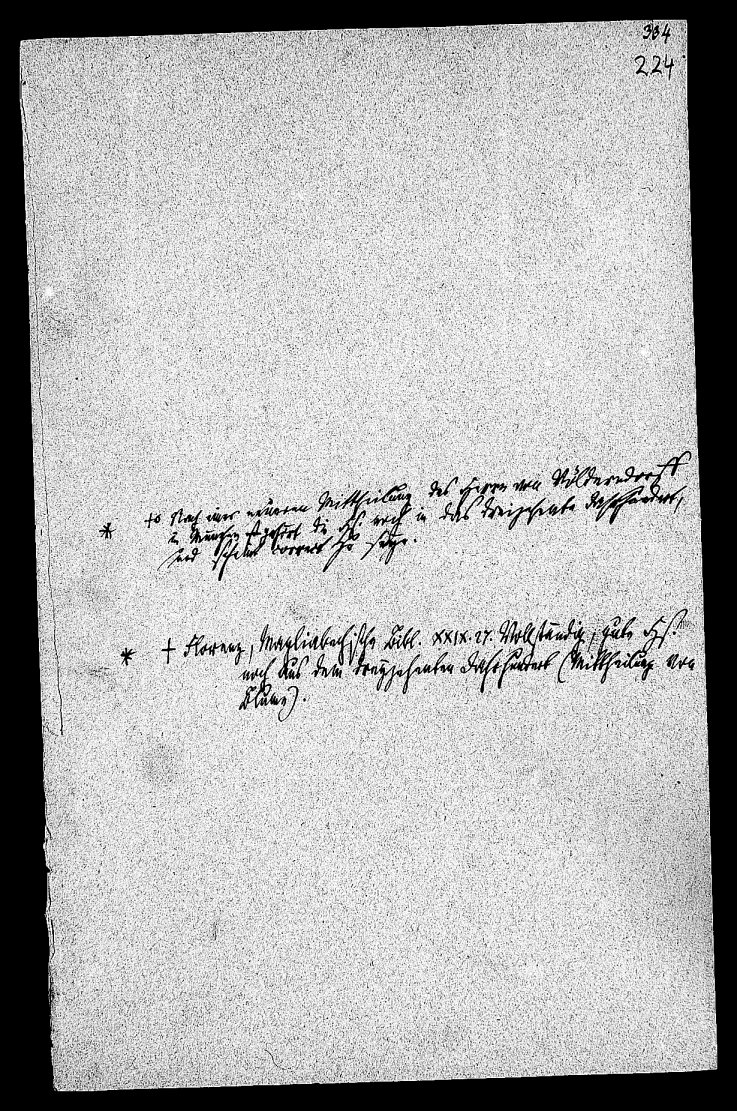 334
224
* †o Nach einer neueren Mittheilung des Herrn von Völderndorff
in München gehört die Hs. noch in das dreizehente Jahrhundert,
und scheint correct zu seyn.
* † Florenz, Magliabechische Bibl. XXIX. 27. Vollständig, gute Hs.
noch aus dem dreyzehenten Jahrhundert (Mittheilung von
Blume).